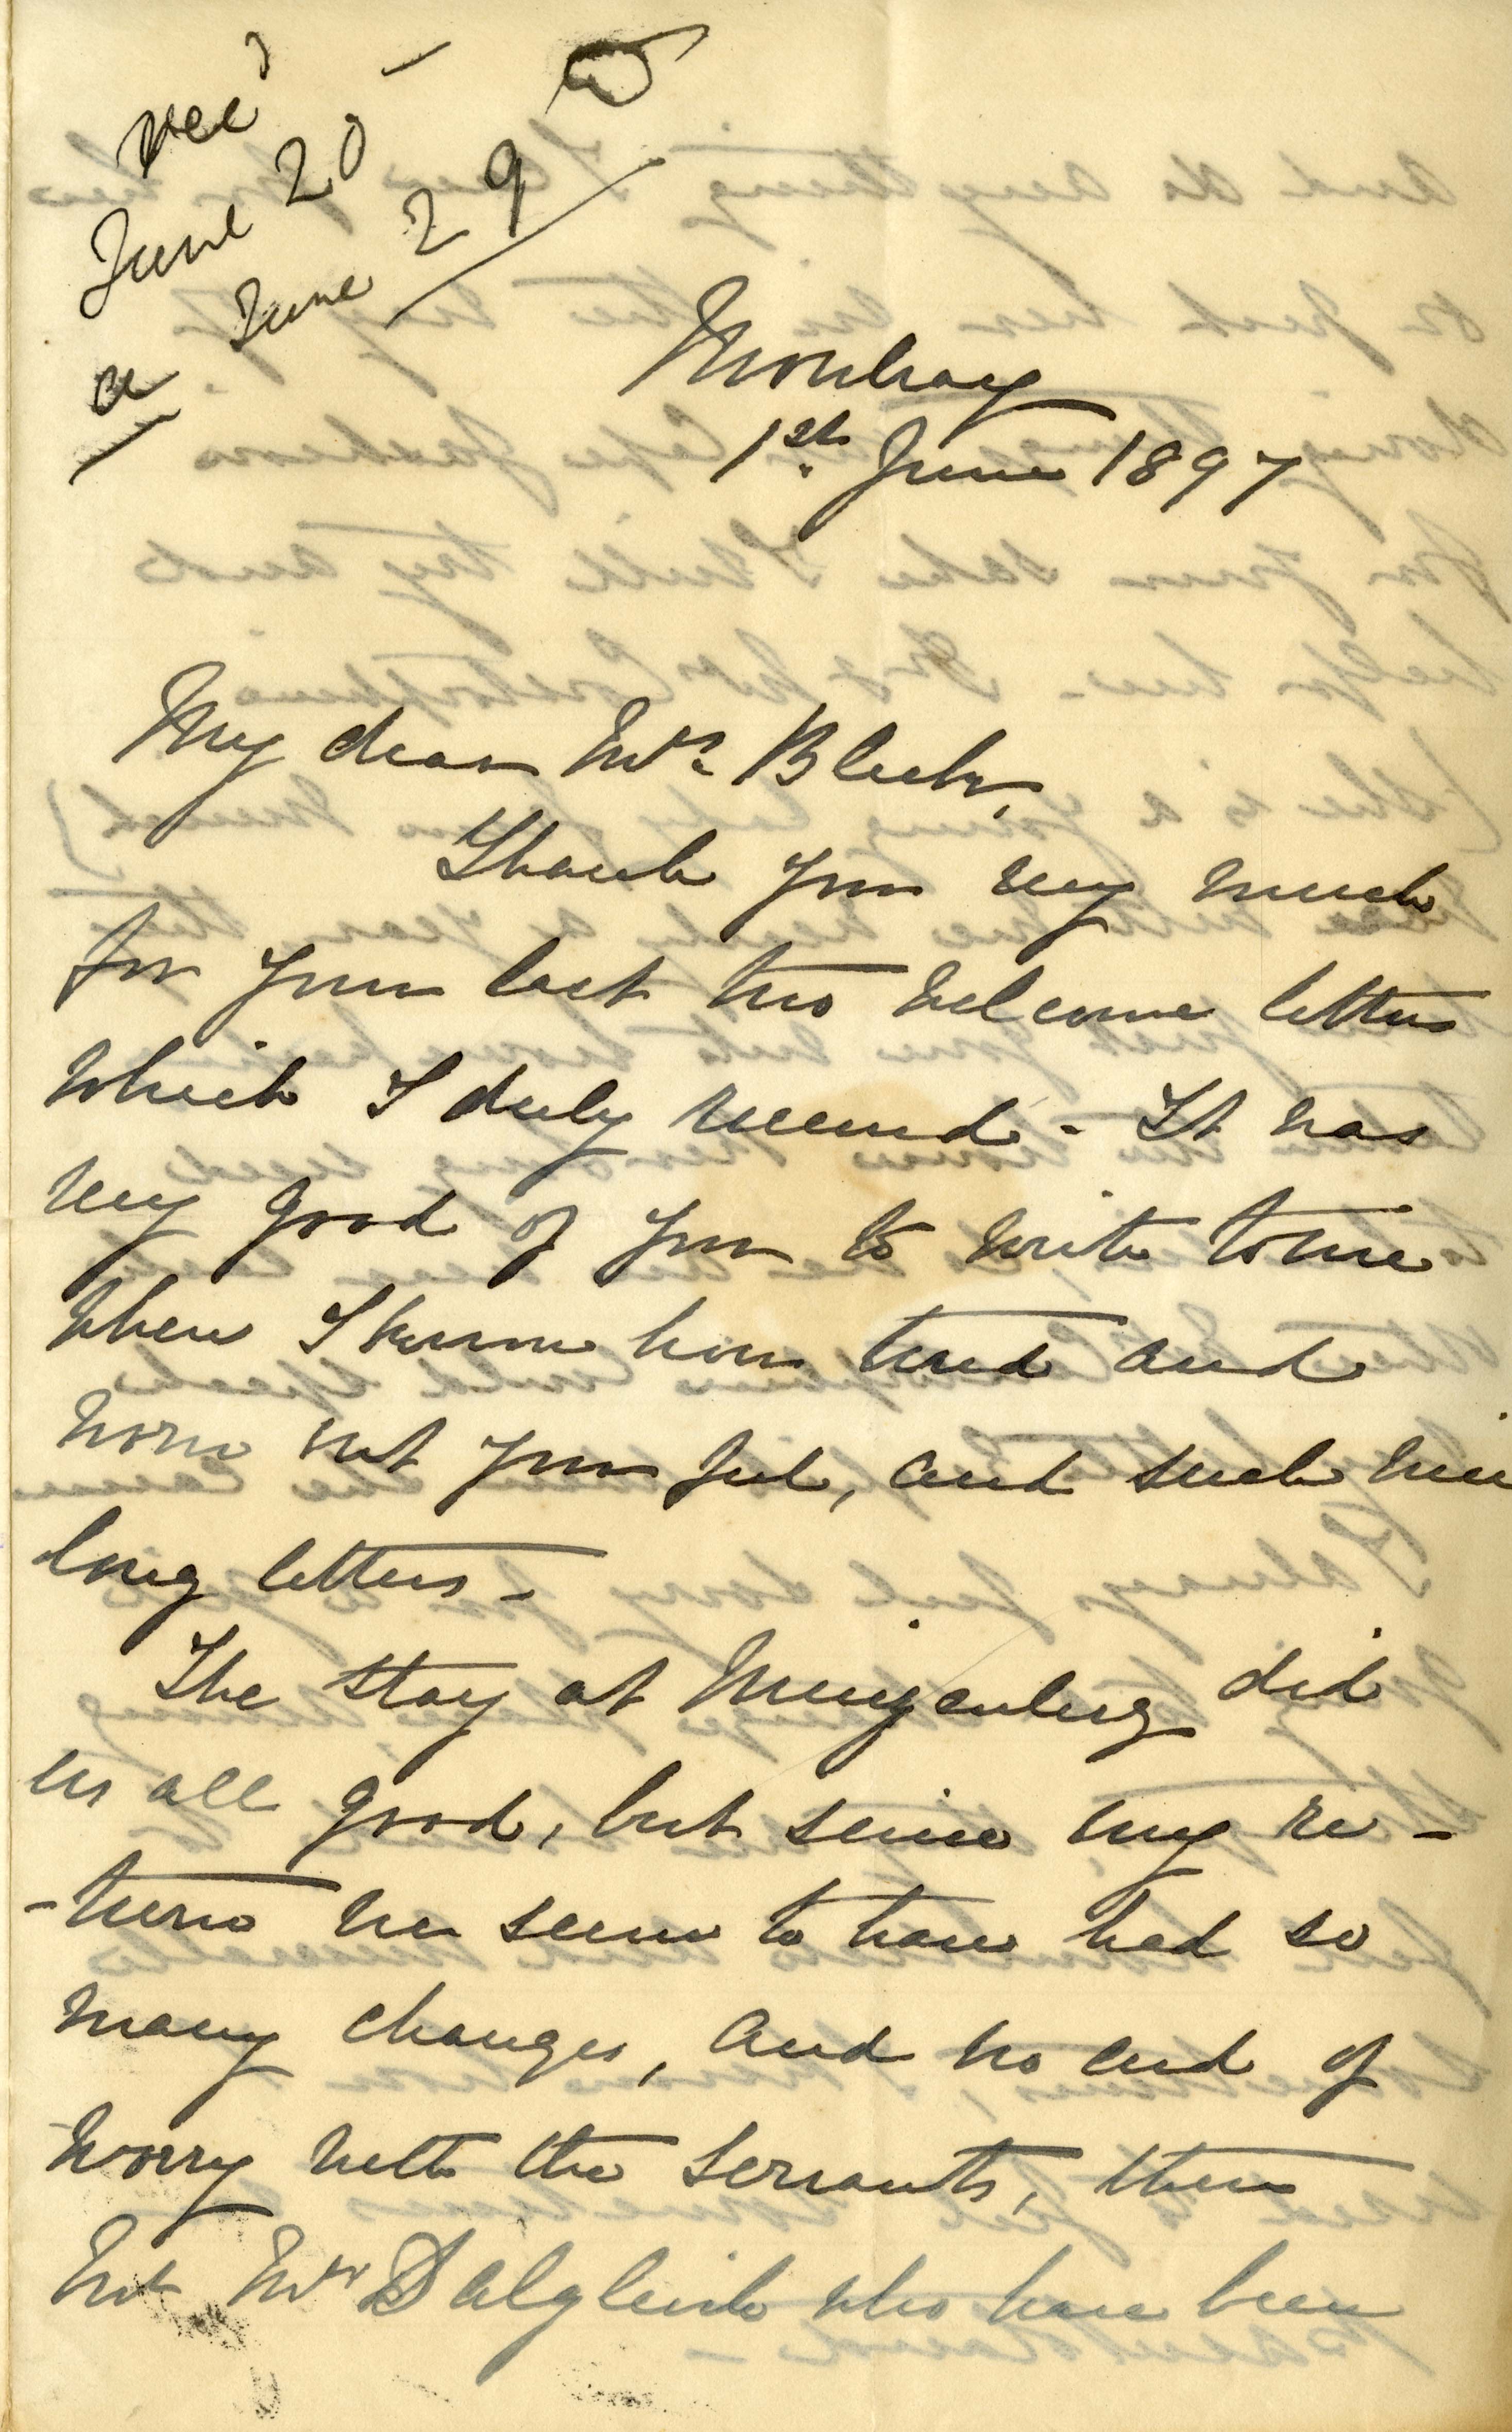 Rec'd
June 20
a June 29
Mowbray
1st. June 1897
My dear Mrs. Bleek,
Thank you very much
for your last two welcome letters
which I duly received - It was
very good of you to write to me
when I know how tired and
worn out you feel, and such nice
long letters -
The stay at Muizenberg did
us all good, but since my re-
-turn we seem to have had so
many changes, and no end of
worry with the servants, then
Mr Mrs Dalgleish who have been